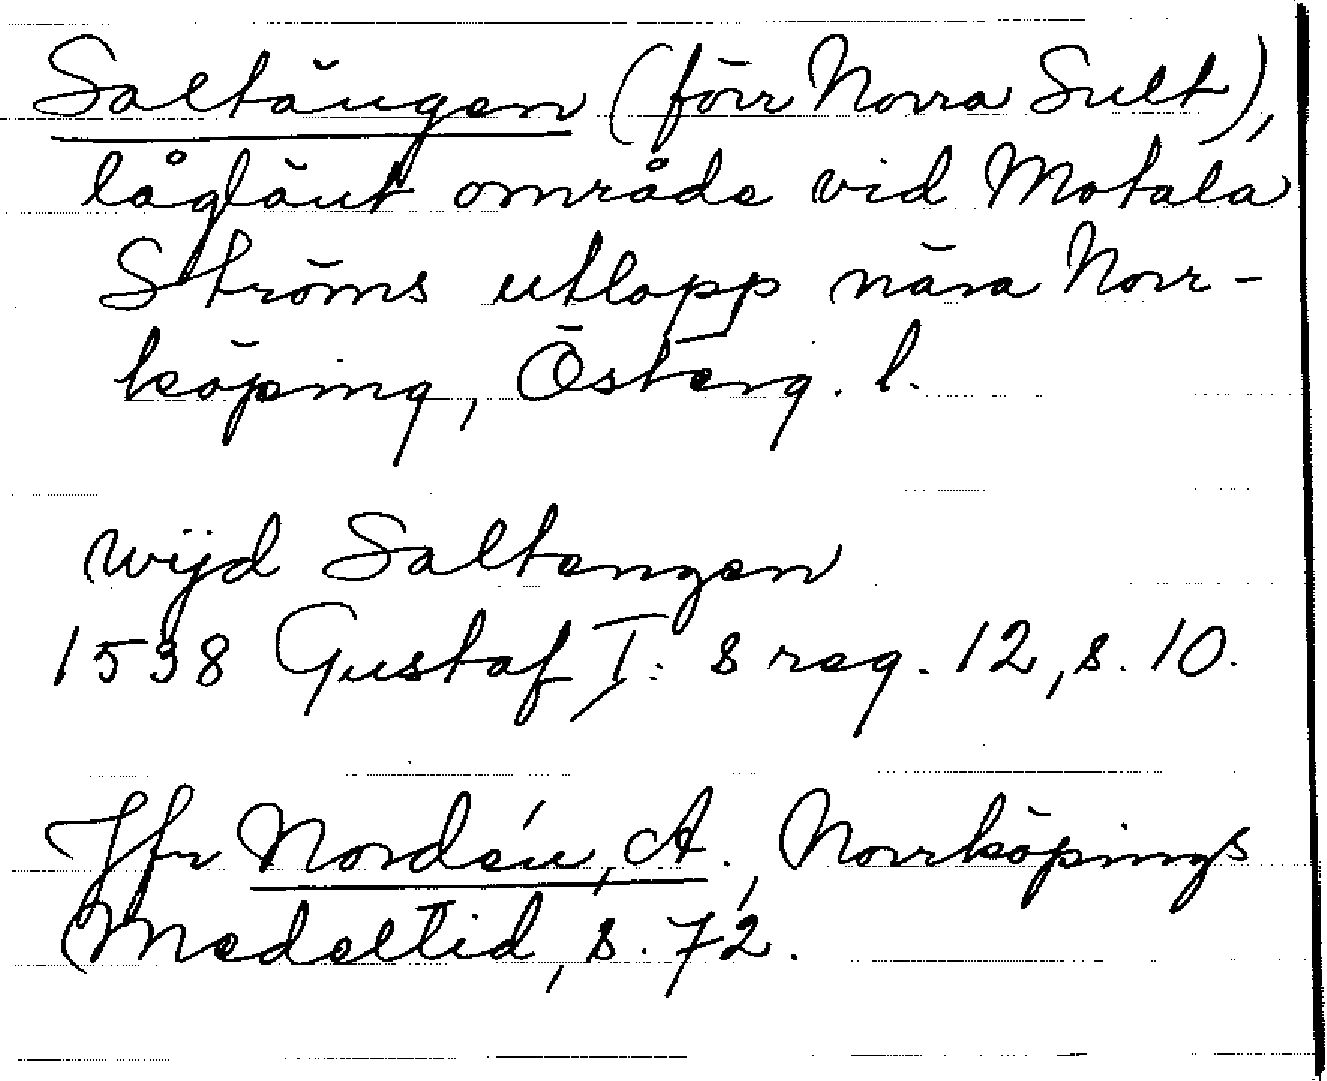 Saltängen (förr Norra Sult),
låglänt område vid Motala
Ströms utlopp nära Norr-
köping, Österg. l.
wijd Saltengen
1538 Gustaf I: s reg. 12, s. 10.
Jfr Nordén, A., Norrköpings
Medeltid, s. 72.